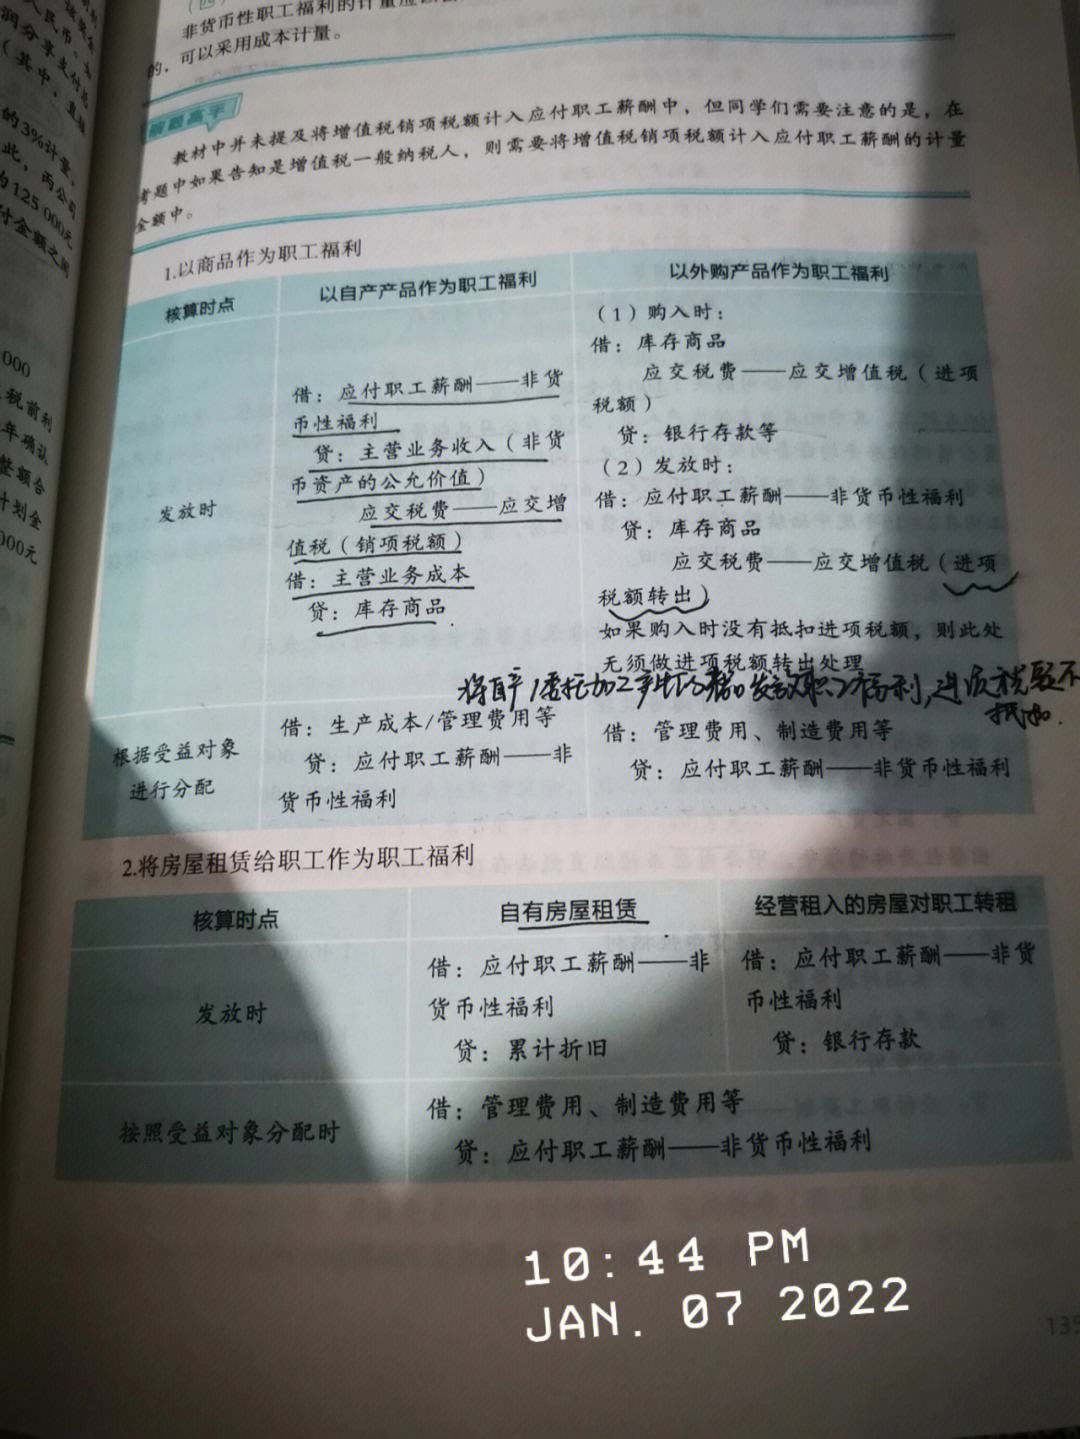 非货币性职工福利的计量应该
的，可以采用成本计量。
教材中并未提及将增值税销项税额计入应付职工薪酬中，但同学们需要注意的是，在
考题中如果告知是增值税一般纳税人，则需要将增值税销项税额计入应付职工薪酬的计量
金额中。
1.以商品作为职工福利
核算时点
以自产产品作为职工福利
以外购产品作为职工福利
发放时
借：应付职工薪酬——非货
币性福利
贷：主营业务收入（非货
币资产的公允价值）
应交税费——应交增
值税（销项税额）
借：主营业务成本
贷：库存商品
（1）购入时：
借：库存商品
应交税费——应交增值税（进项
税额）
贷：银行存款等
（2）发放时：
借：应付职工薪酬——非货币性福利
贷：库存商品
应交税费——应交增值税（进项
税额转出）
如果购入时没有抵扣进项税额，则此处
无须做进项税额转出处理
根据受益对象
进行分配
借：生产成本/管理费用等
贷：应付职工薪酬——非
货币性福利
借：管理费用、制造费用等
贷：应付职工薪酬——非货币性福利
2.将房屋租赁给职工作为职工福利
核算时点
自有房屋租赁
经营租入的房屋对职工转租
发放时
借：应付职工薪酬——非
货币性福利
贷：累计折旧
借：应付职工薪酬——非货
币性福利
贷：银行存款
按照受益对象分配时
借：管理费用、制造费用等
贷：应付职工薪酬——非货币性福利
人民币。
润分享支付总
（其中，直接
的3%计量，
此，丙公司
为125 000元
付金额之间
000
税前利
年确认
整额合
计划金
000元
10:44 PM
JAN. 07 2022
135